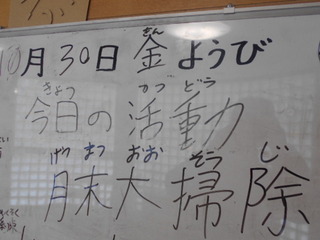 10月30日 金ようび
今日の活動
月末大掃除